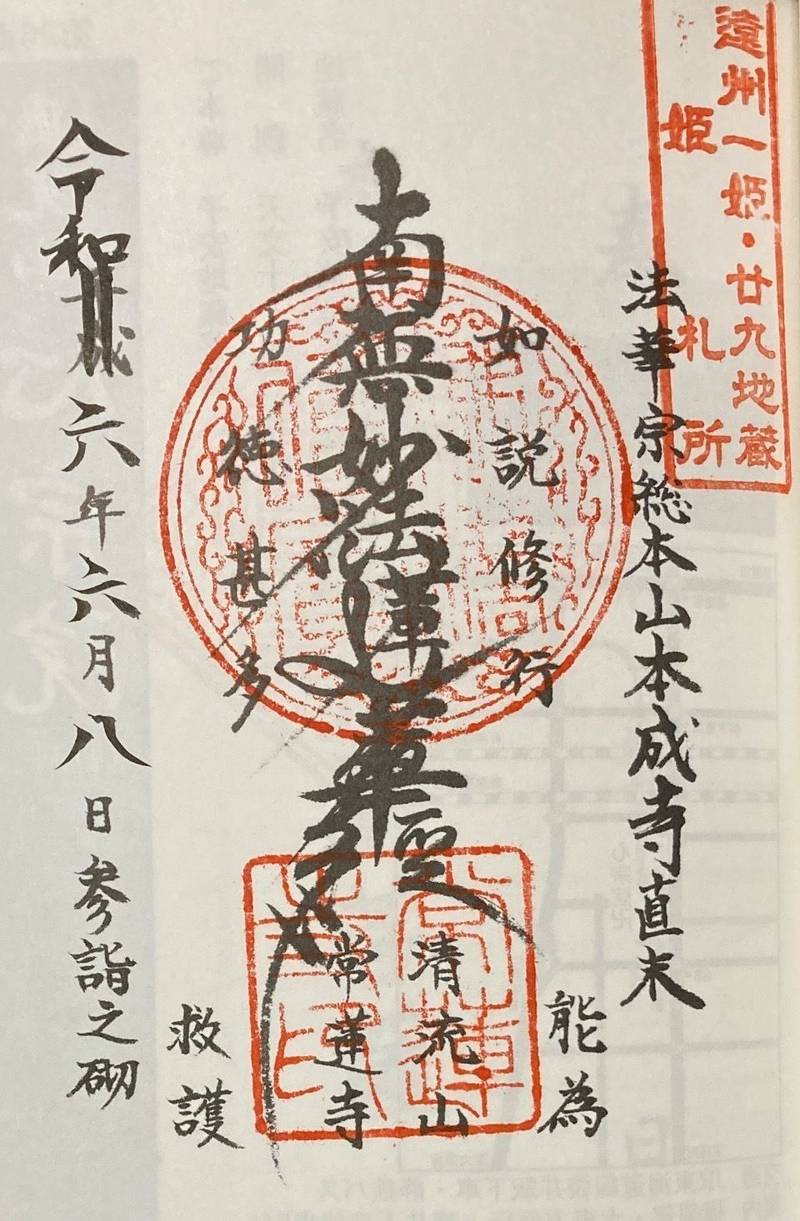 遠州一姫・廿九地蔵
姫 札所
法華宗総本山本成寺直末
如説修行
能為
南無妙法蓮華経
清流山
常蓮寺
功徳甚多
救護
令和六年六月八日参詣之砌